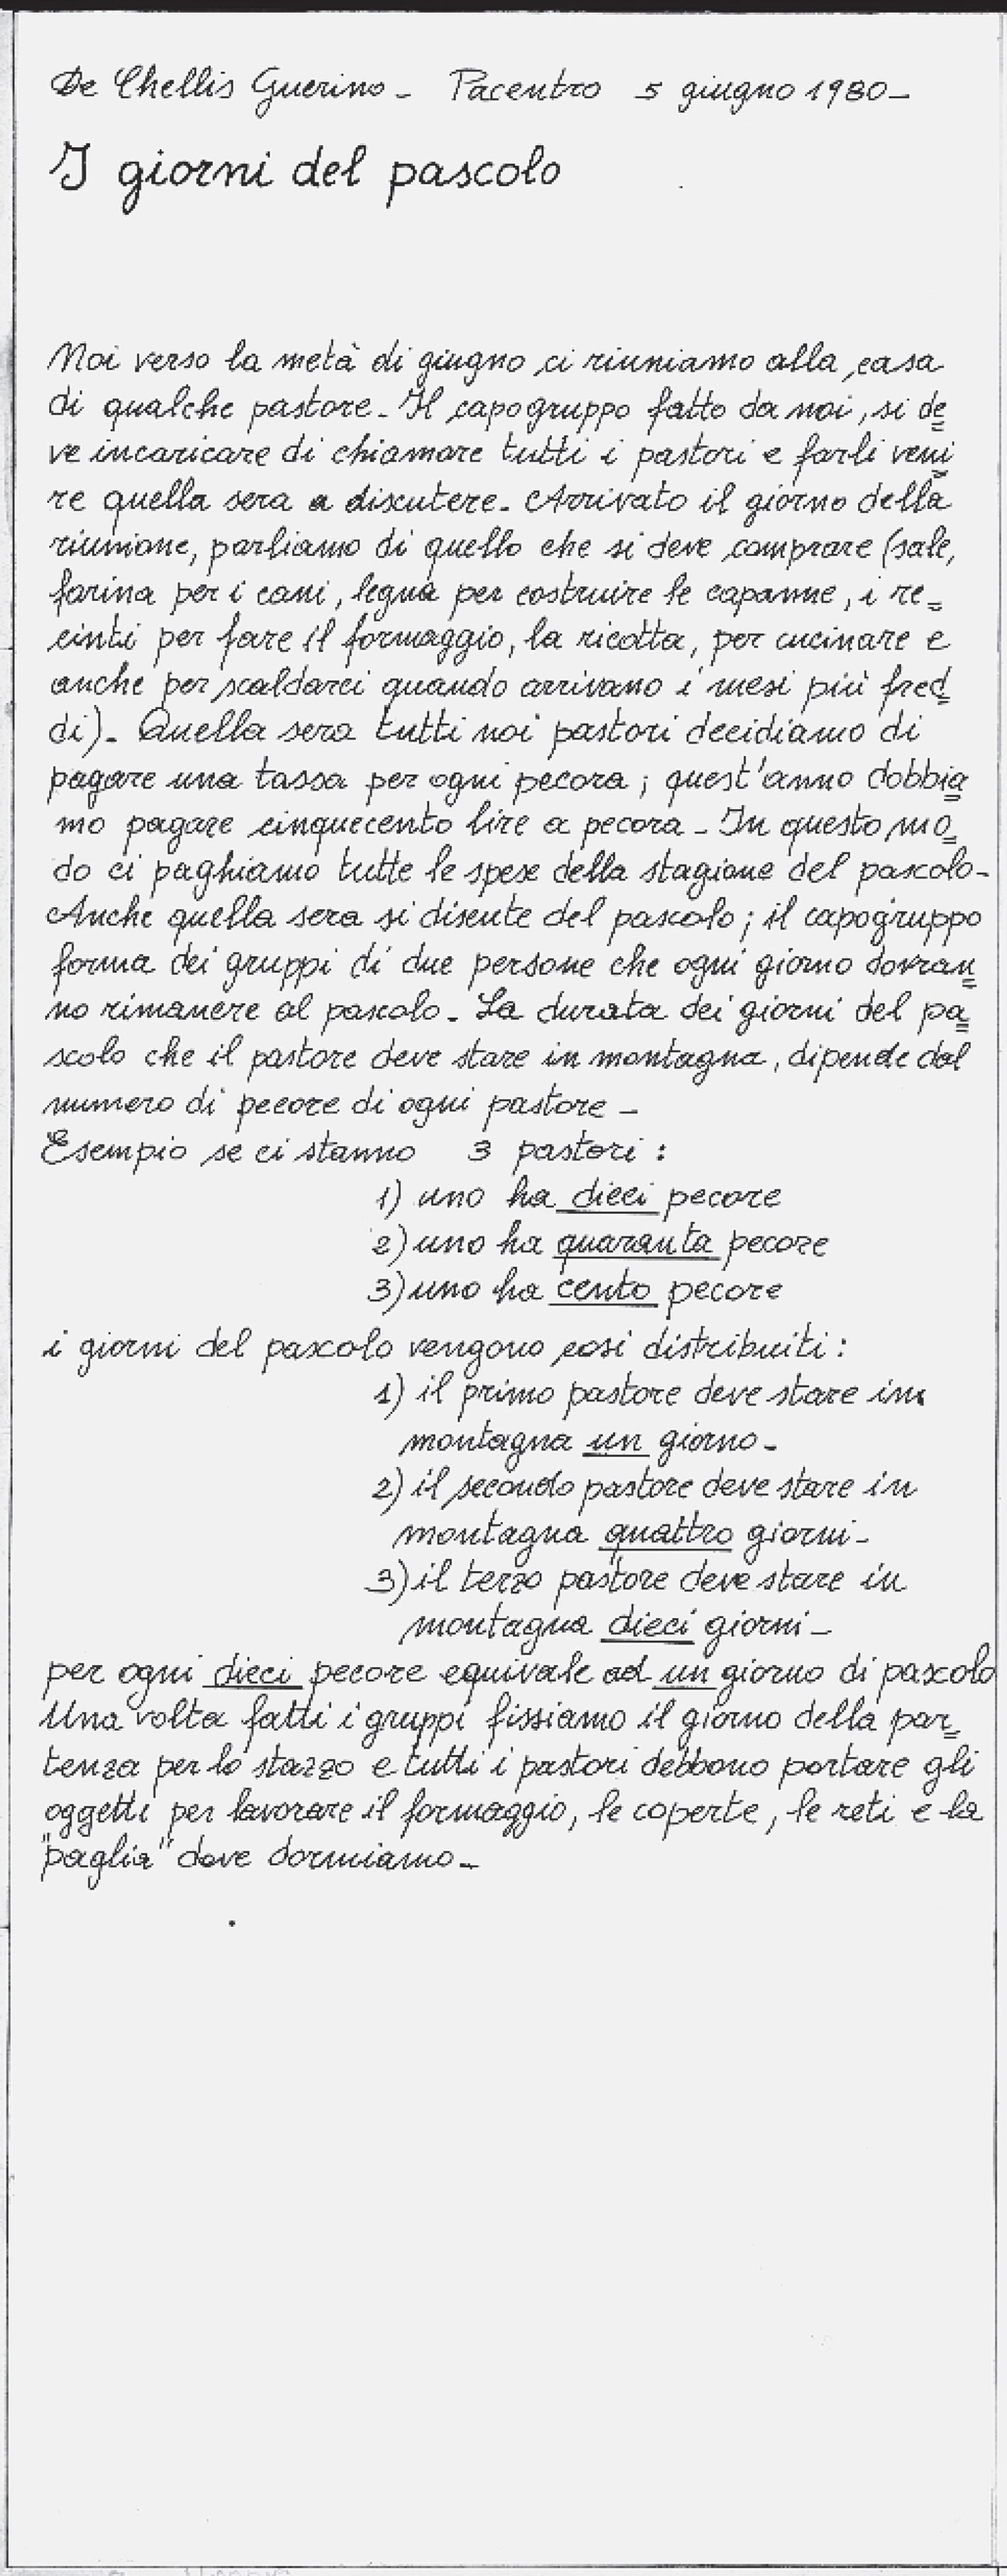 De Chellis Guerino - Pacentro 5 giugno 1980-
I giorni del pascolo
Noi verso la metà di giugno ci riuniamo alla casa
di qualche pastore. Il capogruppo fatto da noi, si de=
ve incaricare di chiamare tutti i pastori e farli veni=
re quella sera a discutere. Arrivato il giorno della
riunione, parliamo di quello che si deve comprare (sale,
farina per i cani, legna per costruire le capanne, i re=
cinti per fare il formaggio, la ricotta, per cucinare e
anche per scaldarci quando arrivano i mesi più fred=
di). Quella sera tutti noi pastori decidiamo di
pagare una tassa per ogni pecora; quest'anno dobbia=
mo pagare cinquecento lire a pecora - In questo mo=
do ci paghiamo tutte le spese della stagione del pascolo-
Anche quella sera si discute del pascolo; il capogruppo
forma dei gruppi di due persone che ogni giorno dovran=
no rimanere al pascolo. La durata dei giorni del pa=
scolo che il pastore deve stare in montagna, dipende dal
numero di pecore di ogni pastore -
Esempio se ci stanno 3 pastori:
1) uno ha dieci pecore
2) uno ha quaranta pecore
3) uno ha cento pecore
i giorni del pascolo vengono così distribuiti:
1) il primo pastore deve stare in
montagna un giorno-
2) il secondo pastore deve stare in
montagna quattro giorni-
3) il terzo pastore deve stare in
montagna dieci giorni-
per ogni dieci pecore equivale ad un giorno di pascolo
Una volta fatti i gruppi fissiamo il giorno della par=
tenza per lo stazzo e tutti i pastori debbono portare gli
oggetti per lavorare il formaggio, le coperte, le reti e la
"paglia" dove dormiamo-